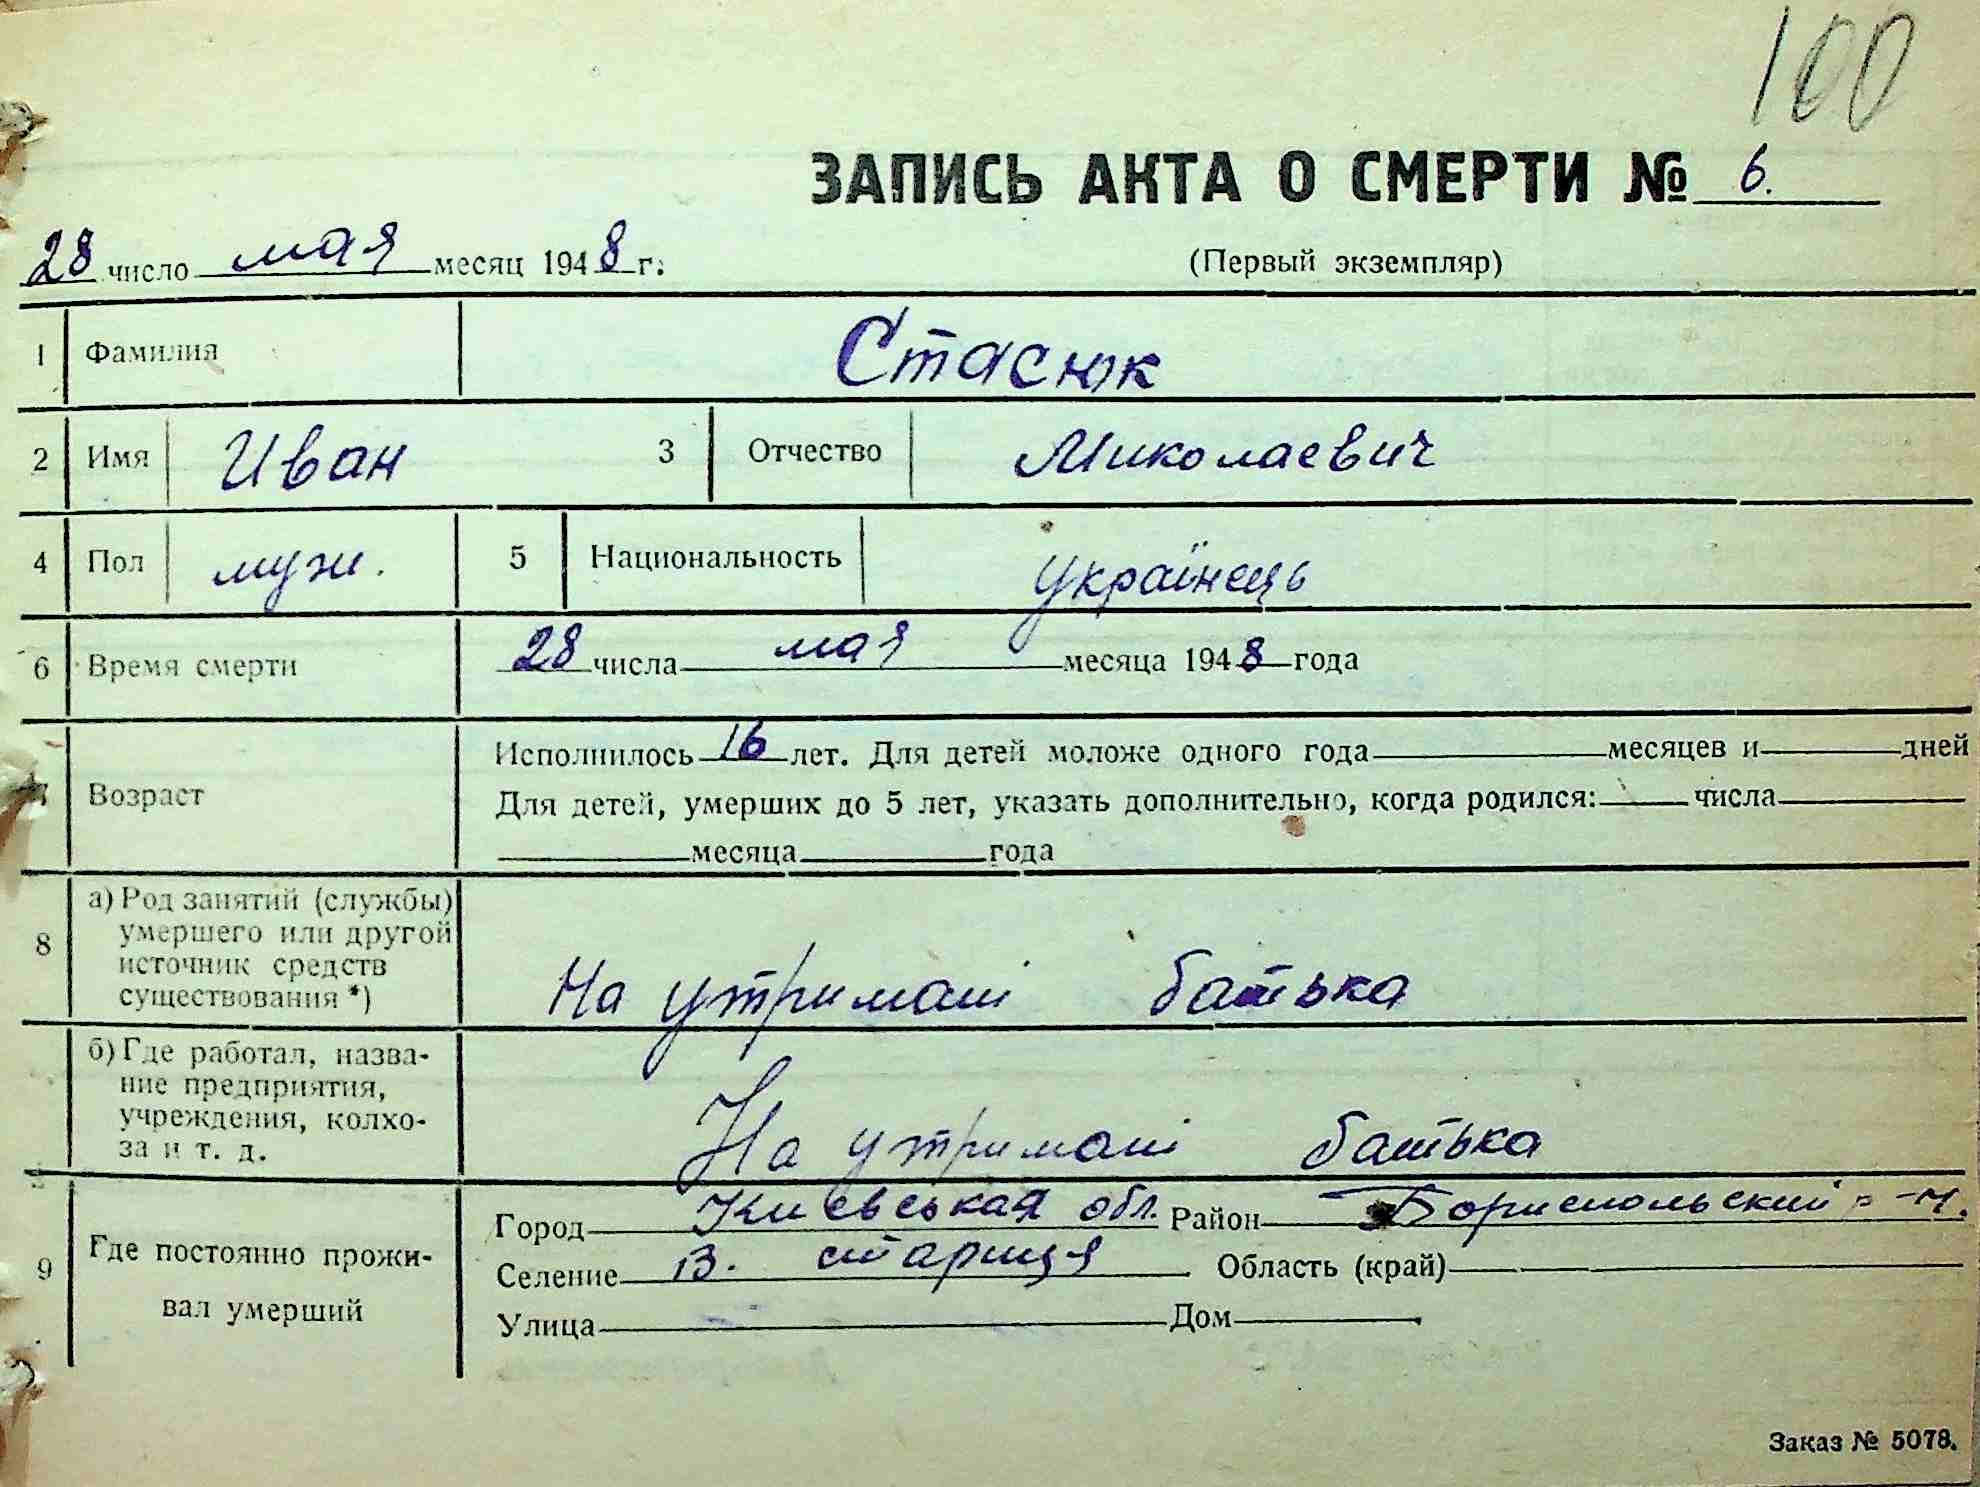 100
ЗАПИСЬ АКТА О СМЕРТИ № 6.
28 число мая месяц 1948 г.
(Первый экземпляр)
1 Фамилия Стасюк
2 Имя Иван 3 Отчество Миколаевич
4 Пол муж. 5 Национальность українець
6 Время смерти 28 числа мая месяца 1948 года
7 Возраст
Исполнилось 16 лет. Для детей моложе одного года месяцев и дней
Для детей, умерших до 5 лет, указать дополнительно, когда родился: числа
месяца года
8 а) Род занятий (службы)
умершего или другой
источник средств
существования *)
На утримані батька
б) Где работал, назва-
ние предприятия,
учреждения, колхо-
за и т. д.
На утримані батька
9 Где постоянно прожи-
вал умерший
Город Киевськая обл. Район Бориспольский р-н.
Селение В. стариця Область (край)
Улица Дом
Заказ № 5078.